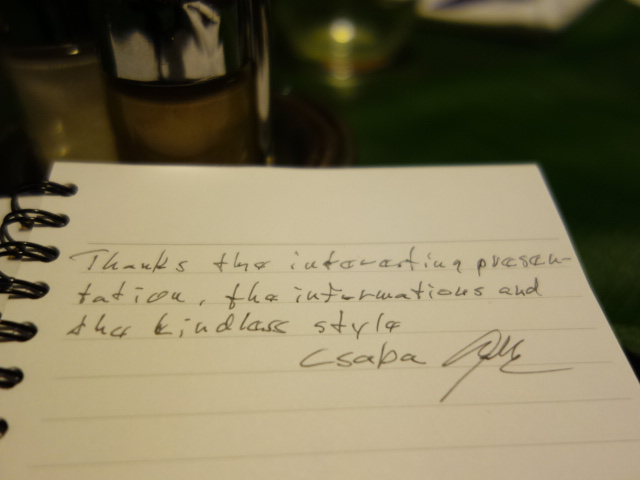 Thanks the interesting presen-
tation, the informations and
the kindless style
Csaba